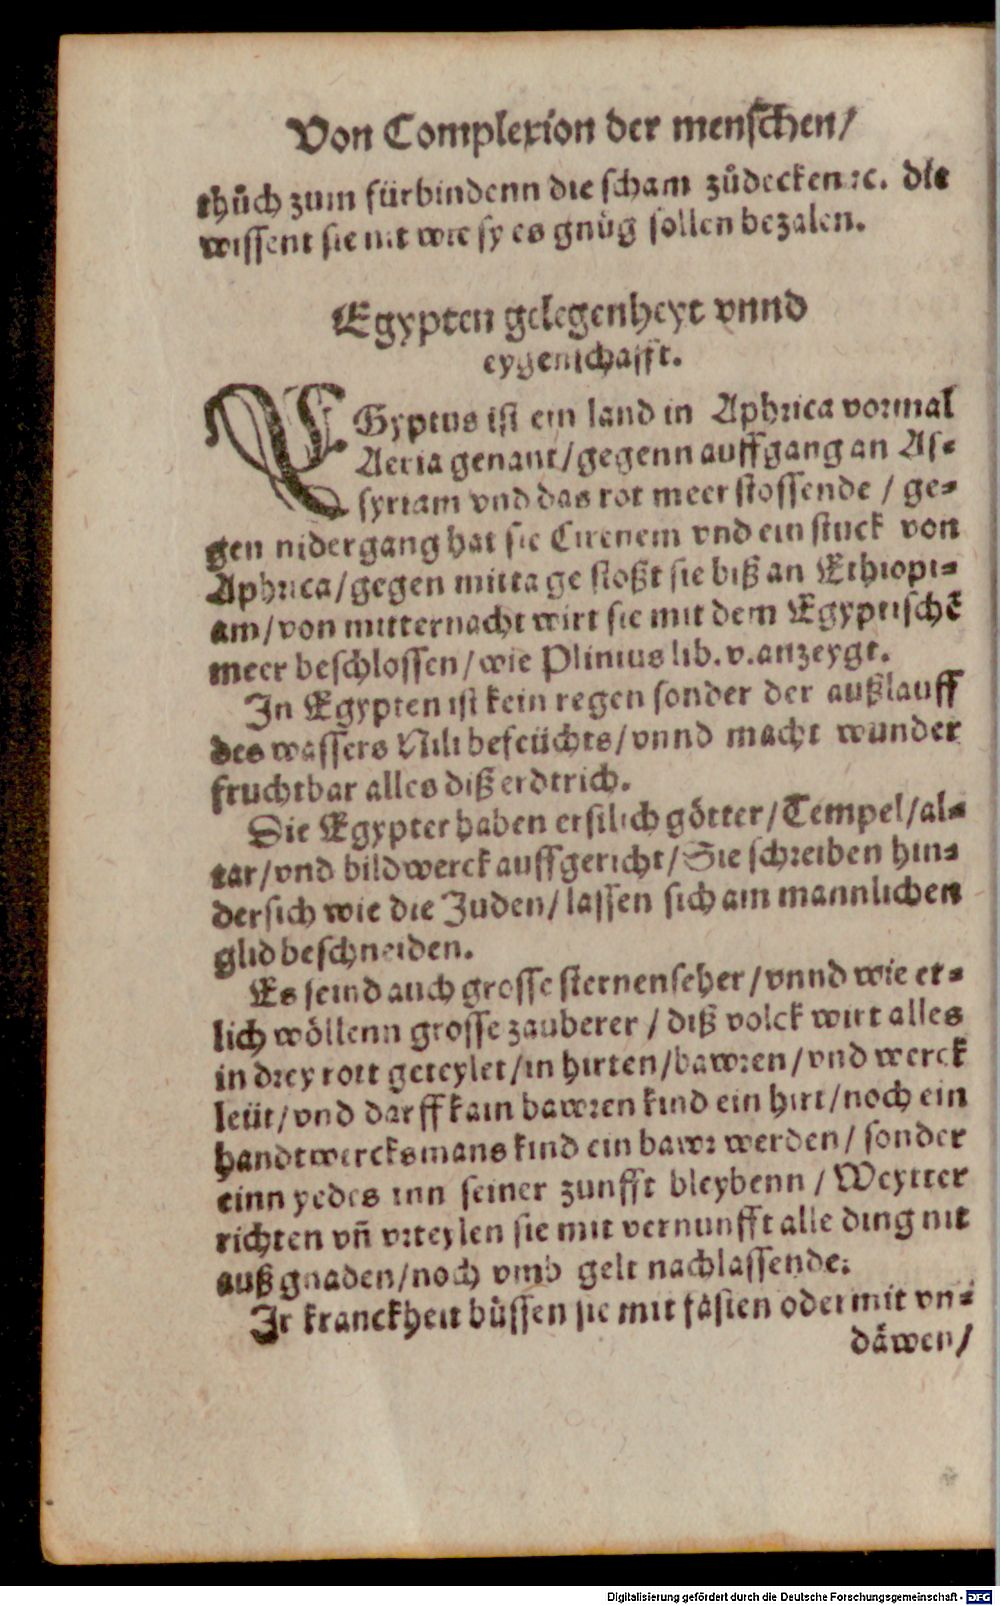 Von Complexion der menschen/
thůch zum fürbindenn die scham zůdecken ꝛc. die
wissent sie nit wie sy es gnůg sollen bezalen.
Egypten gelegenheyt vnnd
eygenschafft.
EGyptus ist ein land in Aphrica vormal
Aeria genant/gegenn auffgang an As-
syriam vnd das rot meer stossende / ge-
gen nidergang hat sie Cirenem vnd ein stuck von
Aphrica/gegen mittage stoßt sie biß an Ethiopi-
am/von mitternacht wirt sie mit dem Egyptischē
meer beschlossen/wie Plinius lib. v. anzeygt.
In Egypten ist kein regen sonder der außlauff
des wassers Nili befeüchts/vnnd macht wunder
fruchtbar alles diß erdtrich.
Die Egypter haben erstlich götter/Tempel/al-
tar/vnd bildwerck auffgericht/Sie schreiben hin-
dersich wie die Juden/lassen sich am mannlichen
glid beschneiden.
Es seind auch grosse sternenseher/vnnd wie et-
lich wöllenn grosse zauberer / diß volck wirt alles
in drey rott geteylet/in hirten/bawren/vnd werck
leüt/vnd darff kain bawren kind ein hirt/noch ein
handtwercksmans kind ein bawr werden/ sonder
einn yedes inn seiner zunfft bleybenn / Weytter
richten vñ vrteylen sie mit vernunfft alle ding nit
auß gnaden/noch vmb gelt nachlassende.
Ir kranckheit bůssen sie mit fasten oder mit vn-
däwen/
Digitalisierung gefördert durch die Deutsche Forschungsgemeinschaft - DFG